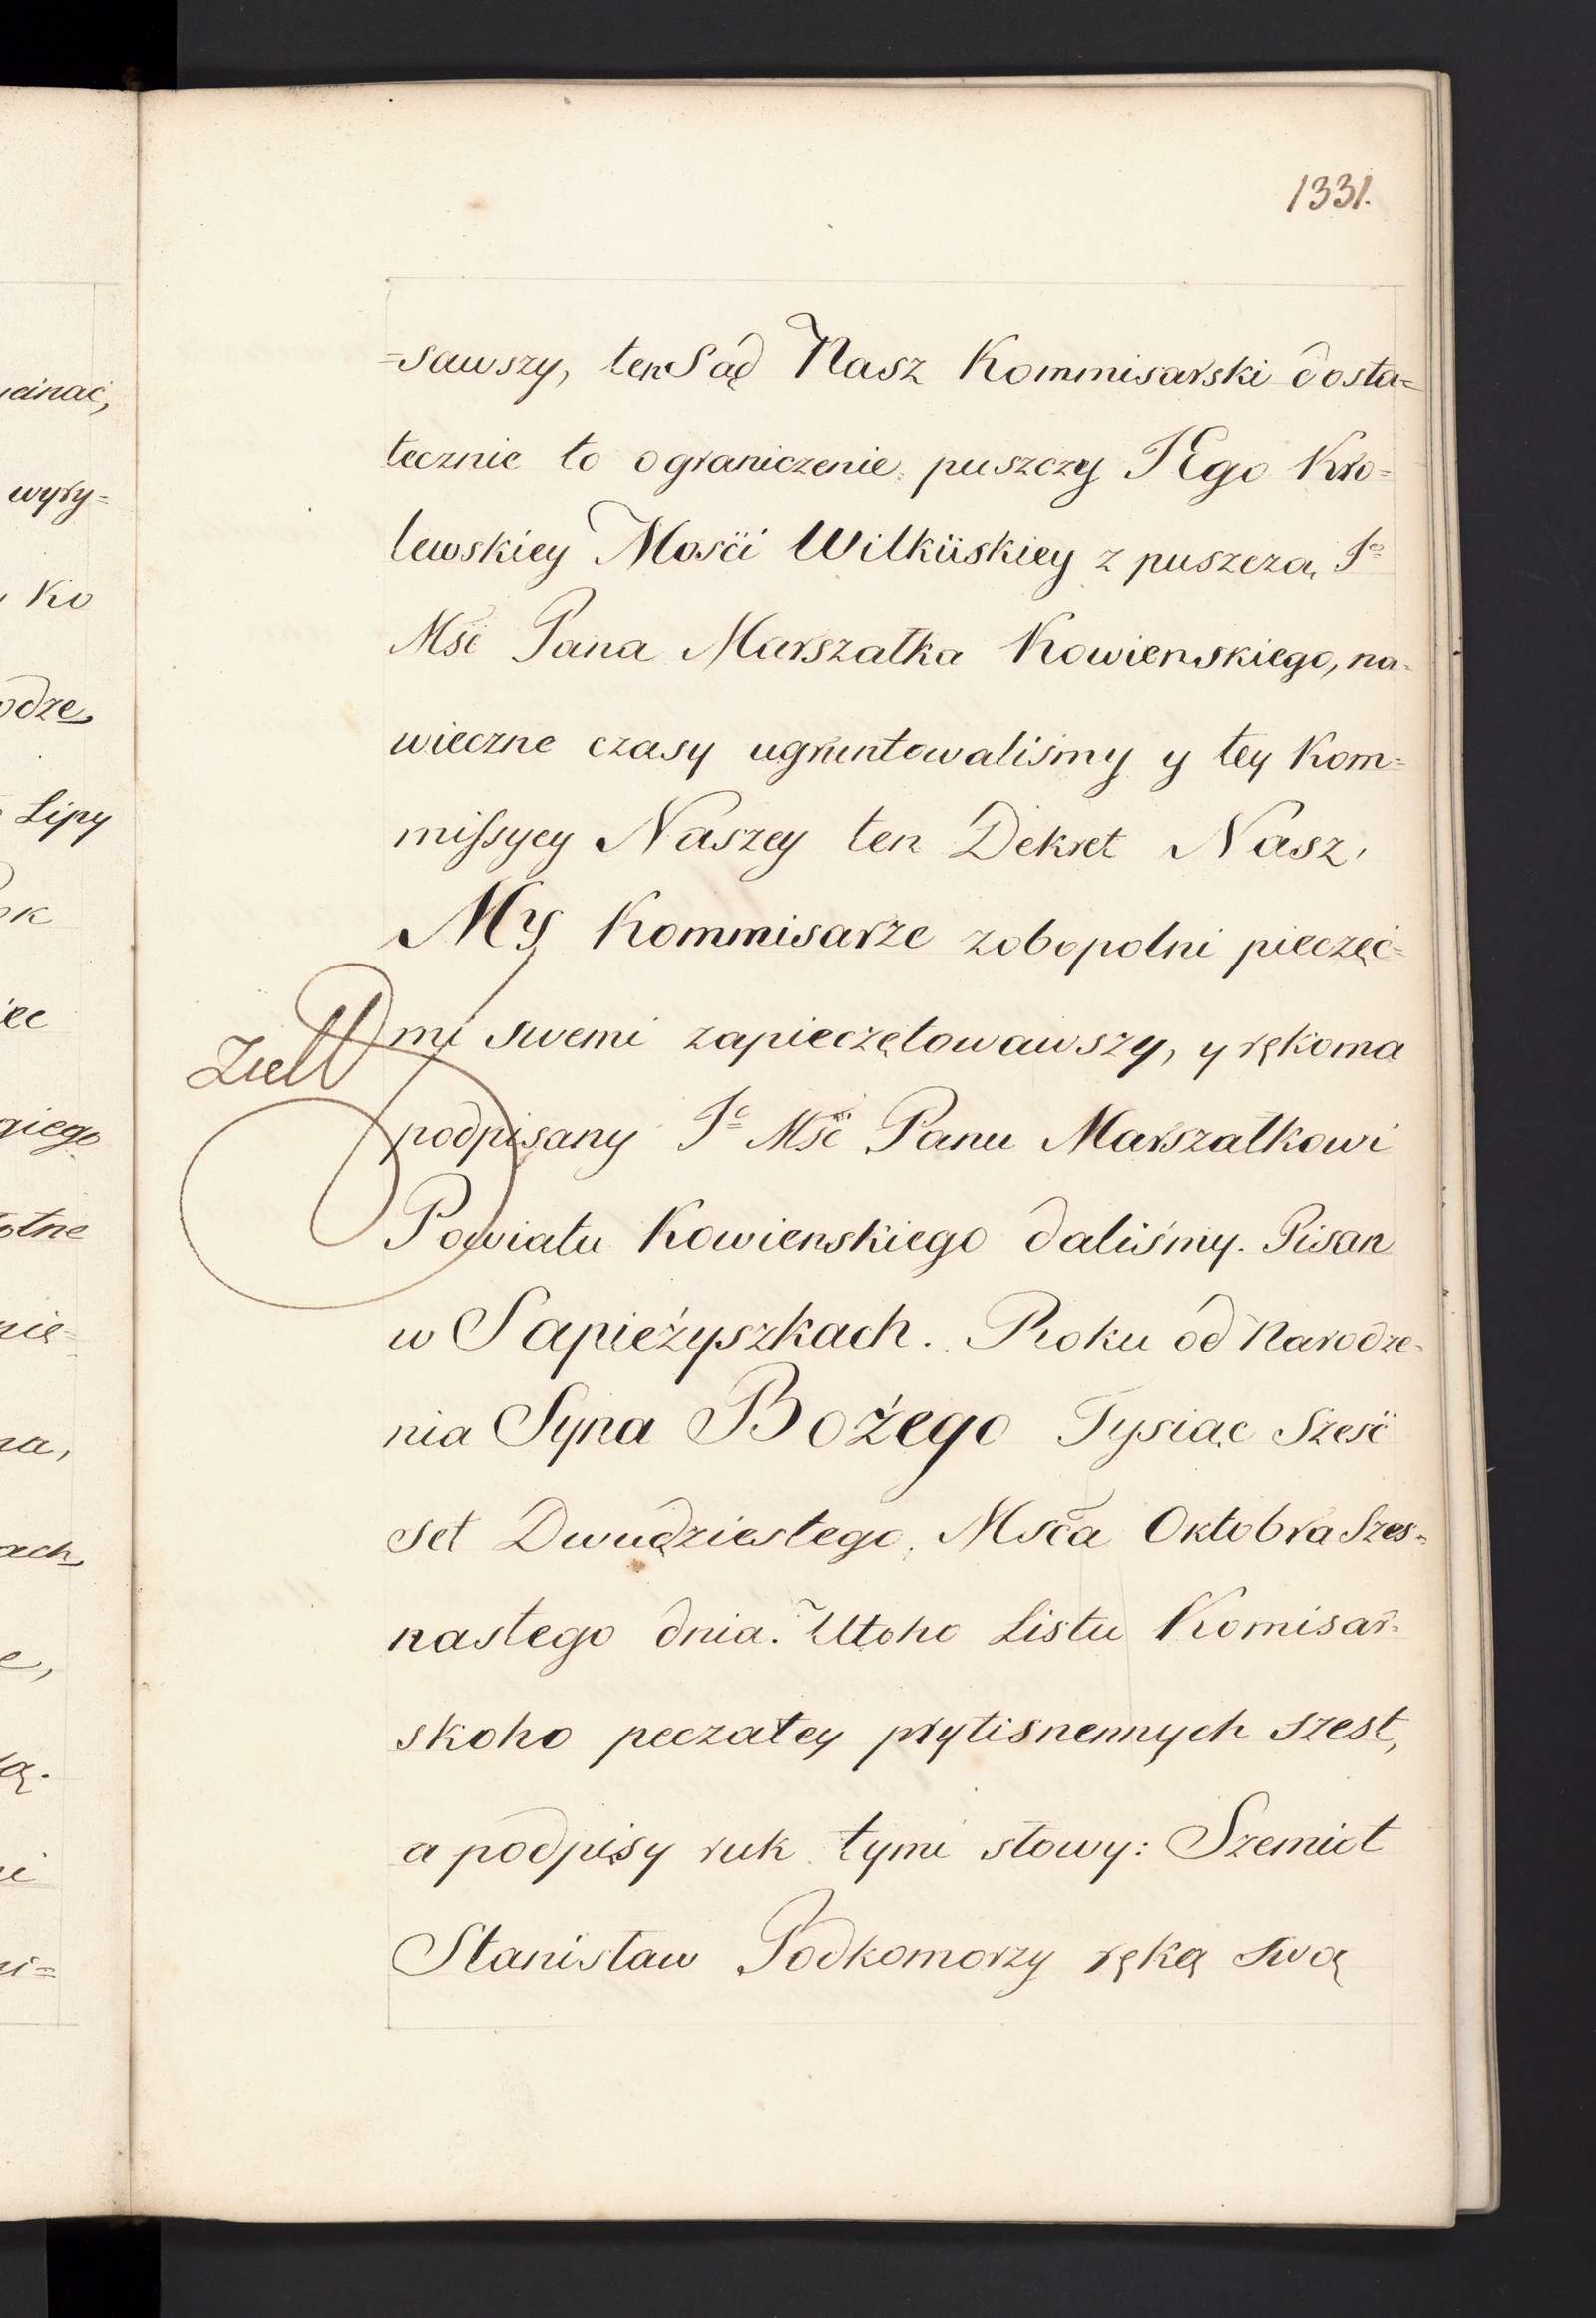 1331.
=sawszy, ten Sąd Nasz Kommisarski dosta=
tecznie to ograniczenie puszczy JEgo Kro=
lewskiey Mosći Wilkiiskiey z puszczą Jº
Mść Pana Marszałka Kowienskiego, na=
wieczne czasy ugruntowaliśmy y tey Kom=
missyey Naszey ten Dekret Nasz,
My Kommisarze zobopolni pieczęć=
mi swemi zapieczętowawszy, y rękoma
podpisany Jº Mść Panu Marszałkowi
Powiatu Kowienskiego daliśmy. Pisan
w Sapieżyszkach. Roku od Narodze=
nia Syna Bożego Tysiąc Sześć
set Dwudziestego, Msca Oktobra Szes=
nastego dnia. Utoho Listu Komisar=
skoho peczatey prytisnennych szest,
a podpisy ruk tymi słowy: Szemiot
Stanisław Podkomorzy ręką swą
ucinać,
wyry=
Ko
odze
Lipy
ok
iec
giego
otne
nie=
na,
ach
e,
tą.
ni
ni=